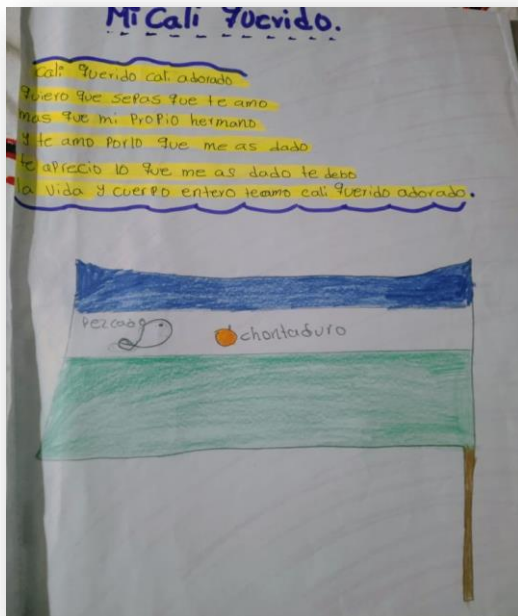 Mi Cali querido.
Cali querido cali adorado
quiero que sepas que te amo
mas que mi propio hermano
y te amo porlo que me as dado
te aprecio lo que me as dado te debo
la vida y cuerpo entero teamo cali querido adorado.
Pezcado
chontaduro